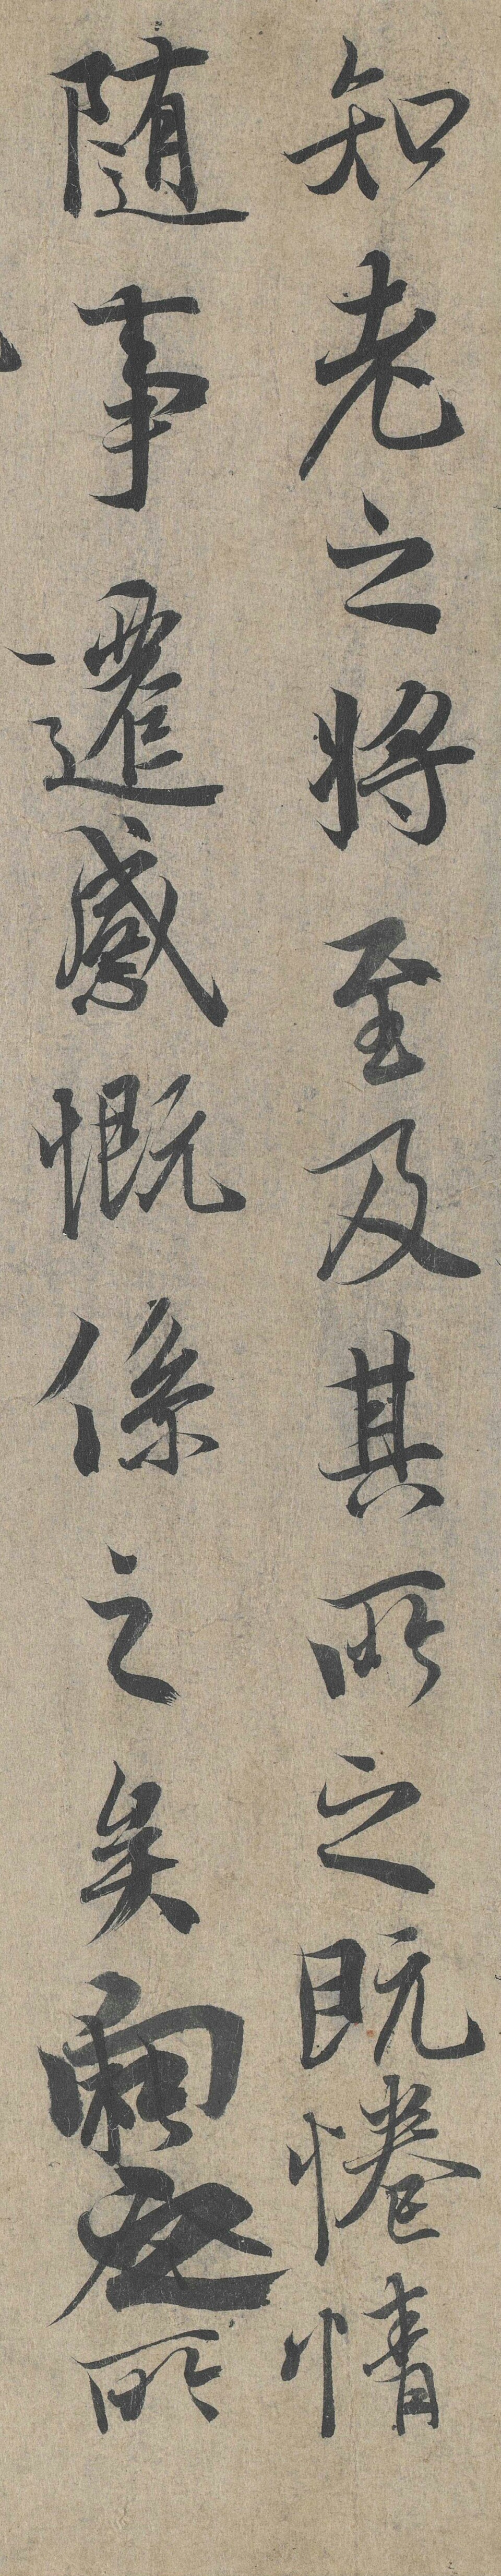 知老之將至及其所之既惓情
随事遷感慨係之矣向之所